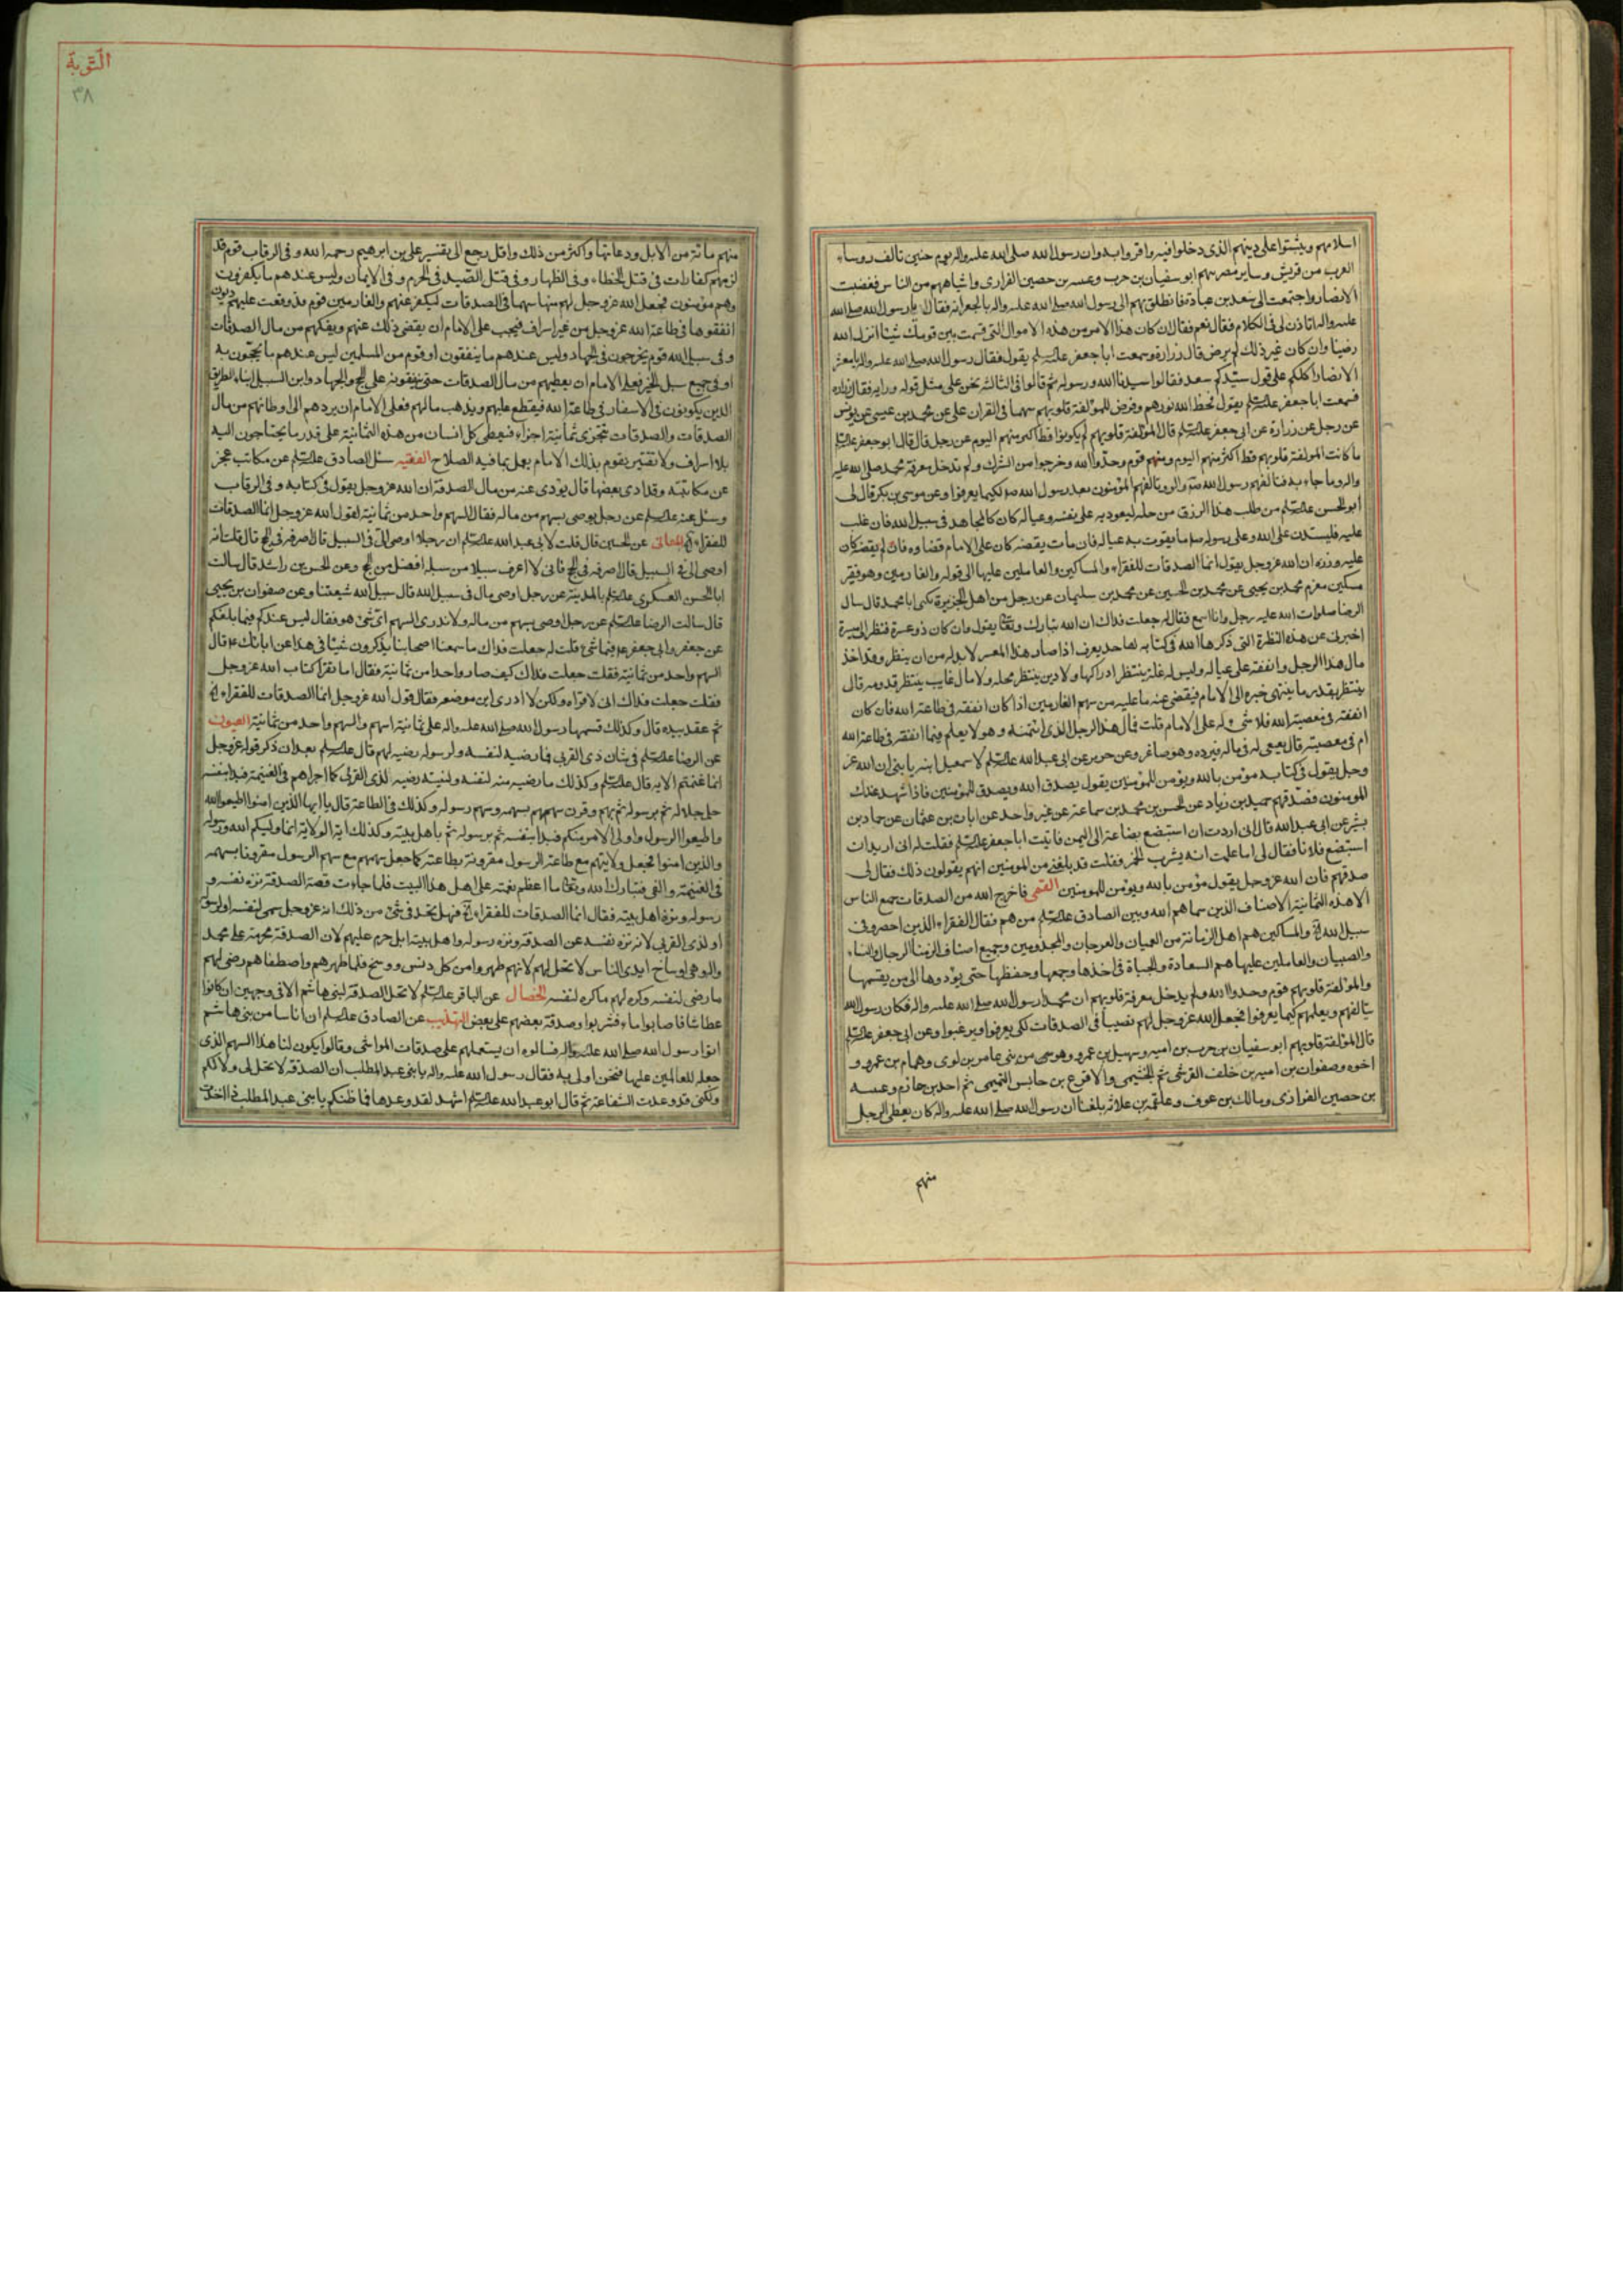 اسلامهم ويثبتوا على دينهم الذى دخلوا فيه واقروا به وان رسول الله صلى الله عليه واله يوم حنين تالف روساء
العرب من قريش وساير مضر منهم ابو سفيان بن حرب وعيينه بن حصين الفزارى واشباههم من الناس فغضبت
الانصار واجتمعت الى سعد بن عبادة فانطلق بهم الى رسول الله صلى الله عليه واله بالجعرانه فقال يا رسول الله صلى الله
عليه واله اتاذن لى فى الكلام فقال نعم فقال ان كان هذا الامر من هذه الاموال التى قسمت بين قومك شيئا انزله الله
رضينا وان كان غير ذلك لم نرض قال زرارة وسمعت ابا جعفر عليه السلم يقول فقال رسول الله صلى الله عليه واله يا معشر
الانصار اكلكم على قول سيدكم سعد فقالوا سيدنا الله ورسوله ثم قالوا فى الثالثه نحن على مثل قوله ورايه فقال زراره
فسمعت ابا جعفر عليه السلم يقول فحط الله نورهم وفرض للمؤلفة قلوبهم سهما فى القران على عن محمد بن عيسى عن يونس
عن رجل عن زرارة عن ابى جعفر عليه السلم قال المؤلفة قلوبهم لم يكونوا قط اكثر منهم اليوم عن رجل قال قال ابو جعفر عليه السلم
ما كانت المولفة قلوبهم قط اكثر منهم اليوم ومنهم قوم وحدوا الله وخرجوا من الشرك ولم تدخل معرفة محمد صلى الله عليه
واله وما جاء به فتالفهم رسول الله ص واله وتالفهم المؤمنون بعد رسول الله ص لكيما يعرفوا وعن موسى بن بكر قال لى
ابو الحسن عليه السلم من طلب هذا الرزق من حله ليعود به على نفسه وعياله كان كالمجاهد فى سبيل الله فان غلب
عليه فليستدن على الله وعلى رسوله ص ما يقوت به عياله فان مات ولم يقضه كان على الامام قضاوه فان لم يقضه كان
عليه وزره ان الله عز وجل يقول انما الصدقات للفقراء والمساكين والعاملين عليها الى قوله والغارمين وهو فقير
مسكين مغرم محمد بن يحيى عن محمد بن الحسين عن محمد بن سليمان عن رجل من اهل الجزيرة يكنى ابا محمد قال سال
الرضا صلوات الله عليه رجل وانا اسمع فقال له جعلت فداك ان الله تبارك وتعالى يقول وان كان ذو عسرة فنظرة الى ميسرة
اخبرنى عن هذه النظرة التى ذكرها الله فى كتابه لها حد يعرف اذا صار هذا المعسر لا بد له من ان ينظر وقد اخذ
مال هذا الرجل وانفقه على عياله وليس له غلة ينتظر ادراكها ولا دين ينتظر محله ولا مال غايب ينتظر قدومه قال
ينتظر بقدر ما ينتهى خبره الى الامام فيقضى عنه ما عليه من سهم الغارمين اذا كان انفقه فى طاعة الله فان كان
انفقه فى معصية الله فلا شئ له على الامام قلت فمال هذا الرجل الذى ائتمنه وهو لا يعلم فيما انفقه فى طاعة الله
ام فى معصيته قال يسعى له فى ماله فيرده وهو صاغر وعن حريز عن ابى عبد الله عليه السلم لاسمعيل ابنه يا بنى ان الله عز
وجل يقول فى كتابه يومن بالله ويؤمن للمؤمنين يقول يصدق الله ويصدق للمؤمنين فاذا شهد عندك
المومنون فصدقهم حميد بن زياد عن الحسن بن محمد بن سماعة عن غير واحد عن ابان بن عثمان عن حماد بن
بشر عن ابى عبد الله قال انى اردت ان استبضع بضاعة الى اليمن فاتيت ابا جعفر عليه السلم فقلت له انى اريد ان
استبضع فلانا فقال لى اما علمت انه يشرب الخمر فقلت قد بلغنى من المومنين انهم يقولون ذلك فقال لى
صدقهم فان الله عز وجل يقول يؤمن بالله ويؤمن للمومنين القمى فاخرج الله من الصدقات جميع الناس
الا هذه الثمانية الاصناف الذين سماهم الله وبين الصادق عليه السلم من هم فقال الفقراء الذين احصروا فى
سبيل الله اية والمساكين هم اهل الزمانة من العميان والعرجان والمجذومين وجميع اصناف الزمنا الرجال والنساء
والصبيان والعاملين عليها هم السعادة والجباة فى اخذها وجمعها وحفظها حتى يؤدوها الى من يقسمها
والمؤلفة قلوبهم قوم وحدوا الله ولم يدخل معرفة قلوبهم ان محمدا رسول الله صلى الله عليه واله فكان رسول الله
يتالفهم ويعلمهم كيما يعرفوا فجعل الله عز وجل لهم نصيبا فى الصدقات لكى يعرفوا ويرغبوا وعن ابى جعفر عليه السلم
قال المؤلفة قلوبهم ابو سفيان بن حرب بن اميه وسهيل بن عمرو وهو من بنى عامر بن لوى وهمام بن عمرو و
اخوه وصفوان بن اميه بن خلف القرشى ثم الجشيمى والاقرع بن حابس التميمى ثم احد بن حازم وعيينه
بن حصين الفزارى ومالك بن عوف وعلقمه بن علاثه بلغنا ان رسول الله صلى الله عليه واله كان يعطى الرجل
منهم
التوبة
٣٨
منهم مائة من الابل ورعاتها واكثر من ذلك واقل رجع الى تفسير على بن ابرهيم رحمه الله وفى الرقاب قوم قد
لزمهم كفارات فى قتل الخطاء وفى الظهار وفى قتل الصيد فى الحرم وفى الايمان وليس عندهم ما يكفرون
وهم مؤمنون فجعل الله عز وجل لهم منها سهما فى الصدقات ليكفر عنهم والغارمين قوم قد وقعت عليهم ديون
انفقوها فى طاعة الله عز وجل من غير اسراف فيجب على الامام ان يقضى ذلك عنهم ويفكهم من مال الصدقات
وفى سبيل الله قوم يخرجون فى الجهاد وليس عندهم ما ينفقون او قوم من المسلمين ليس عندهم ما يحجون به
او فى جميع سبل الخير فعلى الامام ان يعطيهم من مال الصدقات حتى ينفقونه على الحج والجهاد وابن السبيل ابناء الطريق
الذين يكونون فى الاسفار فى طاعة الله فيقطع عليهم ويذهب مالهم فعلى الامام ان يردهم الى اوطانهم من مال
الصدقات والصدقات تتجزى ثمانية اجزاء فيعطى كل انسان من هذه الثمانية على قدر ما يحتاجون اليه
بلا اسراف ولا تقتير يقوم بذلك الامام يعمل بما فيه الصلاح الفقيه سئل الصادق عليه السلم عن مكاتب عجز
عن مكاتبته وقد ادى بعضها قال يؤدى عنه من مال الصدقة ان الله عز وجل يقول فى كتابه وفى الرقاب
وسئل عنه عليه السلم عن رجل يوصى بسهم من ماله فقال السهم واحد من ثمانية لقول الله عز وجل انما الصدقات
للفقراء اية المعانى عن الحسين قال قلت لابى عبد الله عليه السلم ان رجلا اوصى الى فى السبيل قال اصرفه فى الحج قال قلت انه
اوصى الى فى السبيل قال اصرفه فى الحج فانى لا اعرف سبيلا من سبله افضل من الحج وعن الحسن بن راشد قال سالت
ابا الحسن العسكرى عليه السلم بالمدينة عن رجل اوصى بمال فى سبيل الله قال سبيل الله شيعتنا وعن صفوان بن يحيى
قال سالت الرضا عليه السلم عن رجل اوصى بسهم من ماله ولا ندرى السهم اى شئ هو فقال ليس عندكم فيما بلغكم
عن جعفر وابى جعفر ع فيها شئ قلت له جعلت فداك ما سمعنا اصحابنا يذكرون شيئا فى هذا عن ابائك ع قال
السهم واحد من ثمانية فقلت جعلت فداك كيف صار واحدا من ثمانية فقال اما تقرا كتاب الله عز وجل
فقلت جعلت فداك انى لاقراه ولكن لا ادرى اين موضعه فقال قول الله عز وجل انما الصدقات للفقراء اية
ثم عقد بيده قال وكذلك قسمها رسول الله صلى الله عليه واله على ثمانية اسهم والسهم واحد من ثمانية العيون
عن الرضا عليه السلم فى شان ذى القربى فما رضيه لنفسه ولرسوله رضيه لهم قال عليه السلم بعد ان ذكر قوله عز وجل
انما غنمتم الايه قال عليه السلم وكذلك ما رضيه منه لنفسه ولنبيه رضيه لذى القربى كما اجراهم فى الغنيمة فبدا بنفسه
جل جلاله ثم برسوله ثم بهم وقرن سهمهم بسهمه وسهم رسوله وكذلك فى الطاعة قال يا ايها الذين امنوا اطيعوا الله
واطيعوا الرسول واولى الامر منكم فبدا بنفسه ثم برسوله ثم باهل بيته وكذلك اية الولاية انما وليكم الله ورسوله
والذين امنوا فجعل ولايتهم مع طاعة الرسول مقرونة بطاعته كما جعل سهمهم مع سهم الرسول مقرونا بسهمه
فى الغنيمة والفئ فتبارك الله وتعالى ما اعظم نعمته على اهل هذا البيت فلما جاءت قصة الصدقة نزه نفسه و
رسوله ونزه اهل بيته فقال انما الصدقات للفقراء اية فهل تجد فى شئ من ذلك انه عز وجل سمى لنفسه او لرسوله
او لذى القربى لانه نزه نفسه عن الصدقة ونزه رسوله واهل بيته لا بل حرم عليهم لان الصدقة محرمة على محمد
واله وهى اوساخ ايدى الناس لا تحل لهم لانهم طهروا من كل دنس ووسخ فلما طهرهم واصطفاهم رضى لهم
ما رضى لنفسه وكره لهم ما كره لنفسه الخصال عن الباقر عليه السلم لا تحل الصدقة لبنى هاشم الا فى وجهين ان كانوا
عطاشا فاصابوا ماء فشربوا وصدقة بعضهم على بعض التهذيب عن الصادق عليه السلم ان اناسا من بنى هاشم
اتوا رسول الله صلى الله عليه واله فسالوه ان يستعملهم على صدقات المواشى وقالوا يكون لنا هذا السهم الذى
جعله للعالمين عليها فنحن اولى به فقال رسول الله عليه واله يا بنى عبد المطلب ان الصدقة لا تحل لى ولا لكم
ولكنى قد وعدت الشفاعة ثم قال ابو عبد الله عليه السلم اشهد لقد وعدها فما ظنكم يا بنى عبد المطلب اذا اخذت